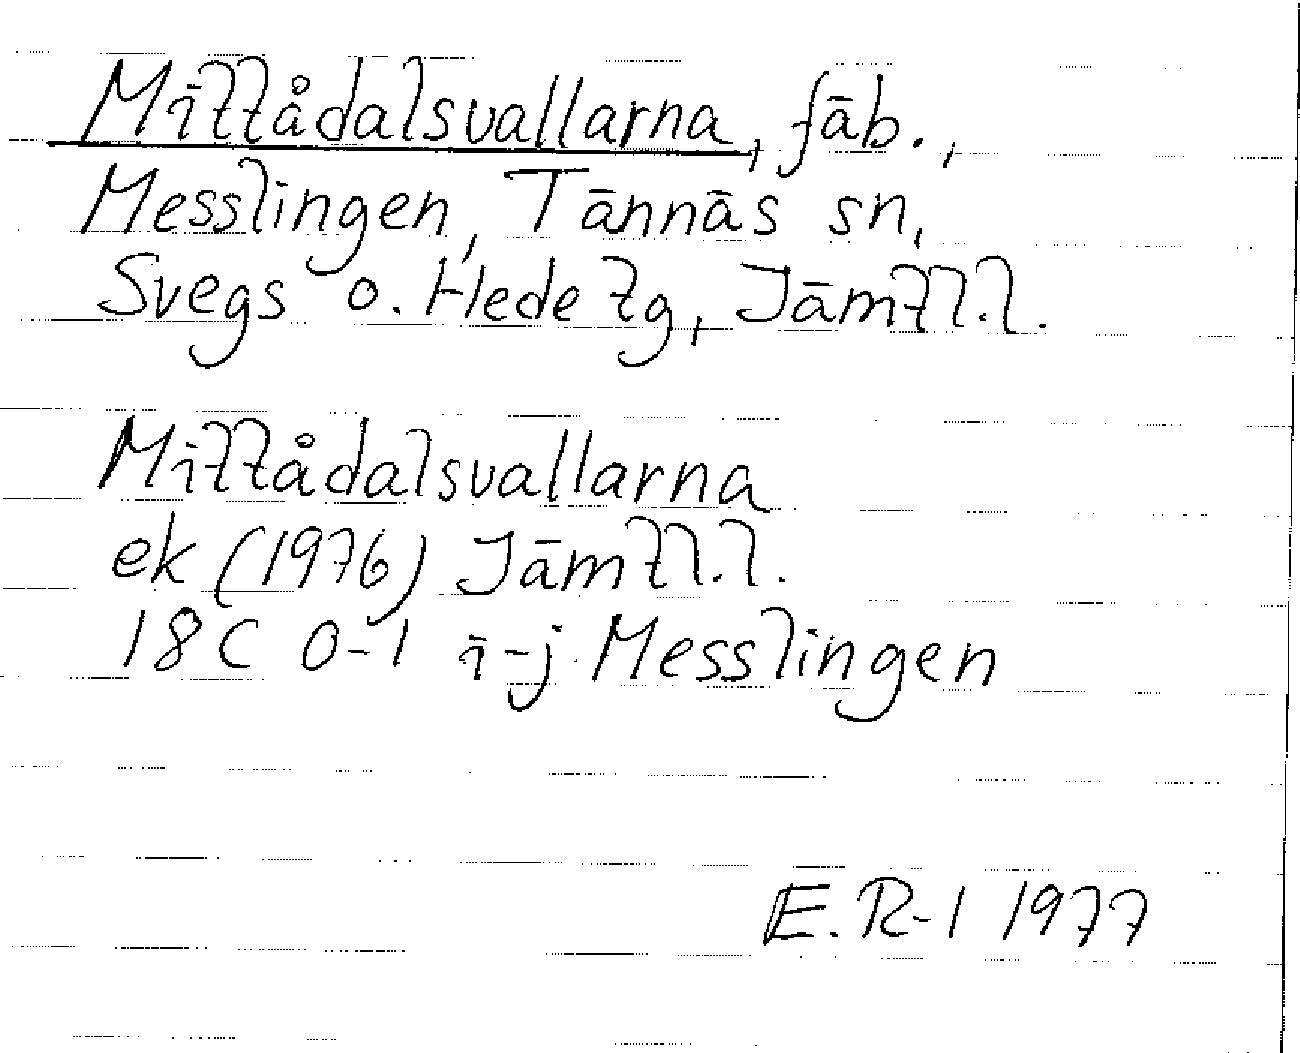 Mittådalsvallarna, fäb.,
Messlingen, Tännäs sn,
Svegs o. Hede tg, Jämtl.l.
Mittådalsvallarna
ek (1976) Jämtl.l.
18C 0-1 i-j Messlingen
E.R-l 1977